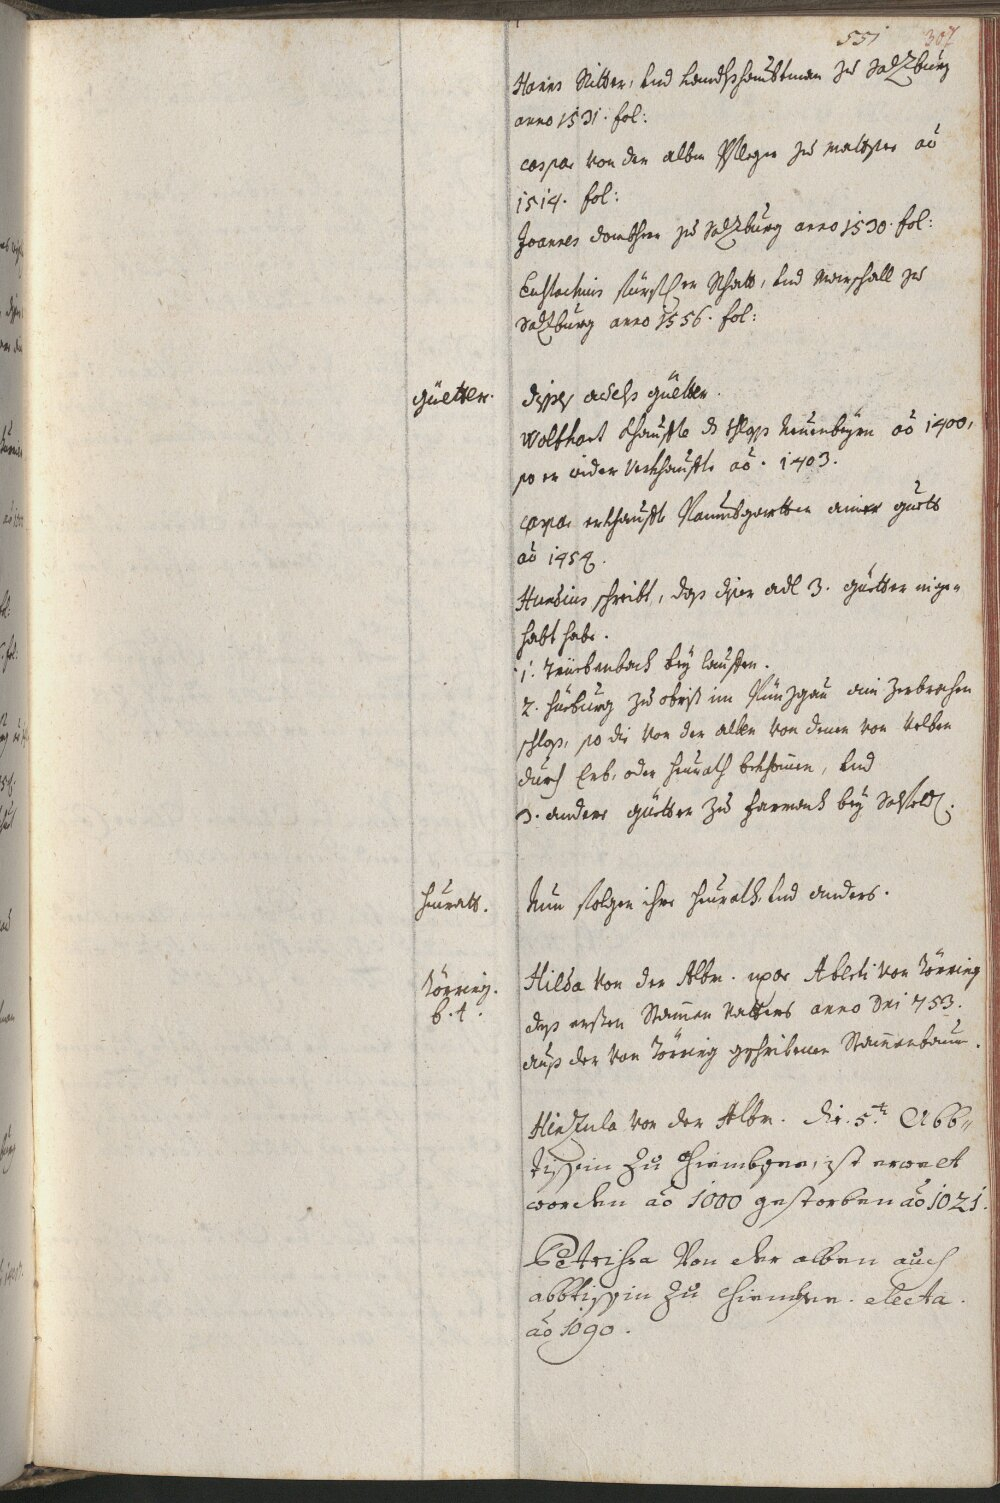 551 307
Hanns Ritter, und Landtshaubtman zu Saltzburg
anno 1531. fol:
Caspar von der alben Pfleger zu Mattsee aō
1514. fol:
Joannes dombherr zu Saltzburg anno 1530. fol:
Eustachius fürstl er Rhatt, und Marschall zu
Saltzburg anno 1556. fol:
Güetter. dises adels güetter.
Wolfhart khauffte dz schloss Neuenbeyrn aō 1400,
so er wider verkhauffte aō. 1403.
erkhaufft ainer guetts
aō 1454.
Hundius schreibt, das diser adl 3. güetter inge-
habt habe.
1. Triebenbach bey lauffen.
2. Hieburg zu obrist im Pinzgau ain zerbrochen
schloss, so die von der alben von denen von Velben
durch Erb, oder heurath bekhommen, und
3. andere güetter zu bey
Heuratt. Nun folgen ihre heurath, und anders.
Törring. Hilda von der Albm. uxor von Törring
b.t. dess ersten Stammen vatters anno Dni 753.
auss der von Törring geschribenen Stammenbaum.
von der Albm. die 5.te Abb-
tissin zu Chiembsee, ist erwelt
worden aō 1000 gestorben aō 1021.
von der alben auch
abbtissin zu Chiembsee. electa.
aō 1090.